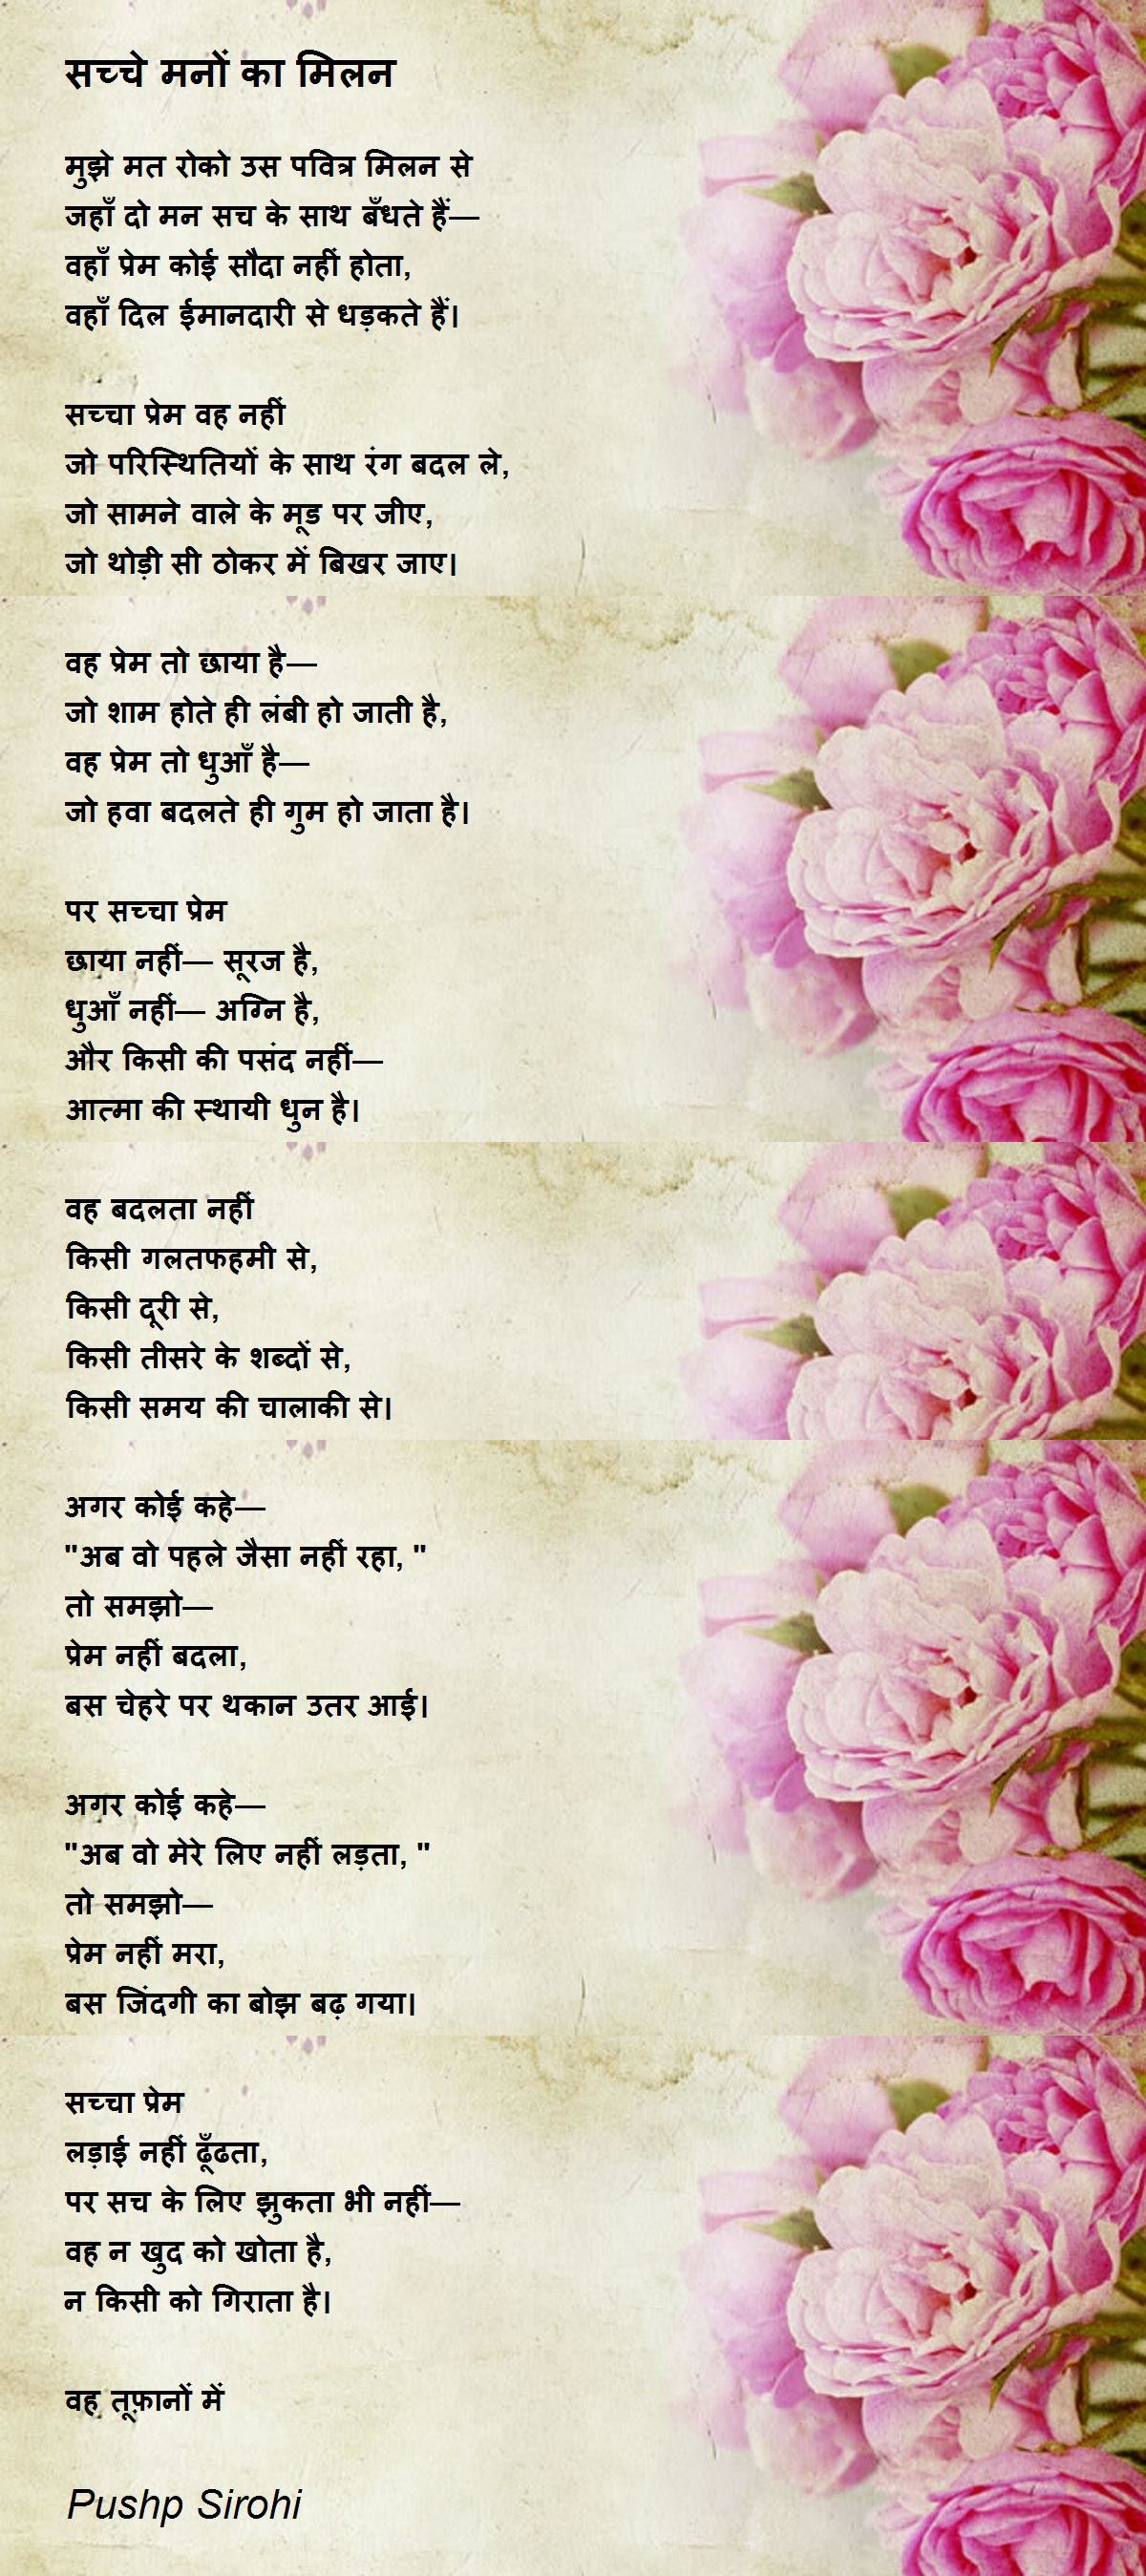 सच्चे मनों का मिलन
मुझे मत रोको उस पवित्र मिलन से
जहाँ दो मन सच के साथ बँधते हैं—
वहाँ प्रेम कोई सौदा नहीं होता,
वहाँ दिल ईमानदारी से धड़कते हैं।
सच्चा प्रेम वह नहीं
जो परिस्थितियों के साथ रंग बदल ले,
जो सामने वाले के मूड पर जीए,
जो थोड़ी सी ठोकर में बिखर जाए।
वह प्रेम तो छाया है—
जो शाम होते ही लंबी हो जाती है,
वह प्रेम तो धुआँ है—
जो हवा बदलते ही गुम हो जाता है।
पर सच्चा प्रेम
छाया नहीं— सूरज है,
धुआँ नहीं— अग्नि है,
और किसी की पसंद नहीं—
आत्मा की स्थायी धुन है।
वह बदलता नहीं
किसी गलतफहमी से,
किसी दूरी से,
किसी तीसरे के शब्दों से,
किसी समय की चालाकी से।
अगर कोई कहे—
"अब वो पहले जैसा नहीं रहा, "
तो समझो—
प्रेम नहीं बदला,
बस चेहरे पर थकान उतर आई।
अगर कोई कहे—
"अब वो मेरे लिए नहीं लड़ता, "
तो समझो—
प्रेम नहीं मरा,
बस जिंदगी का बोझ बढ़ गया।
सच्चा प्रेम
लड़ाई नहीं ढूँढता,
पर सच के लिए झुकता भी नहीं—
वह न खुद को खोता है,
न किसी को गिराता है।
वह तूफ़ानों में
Pushp Sirohi